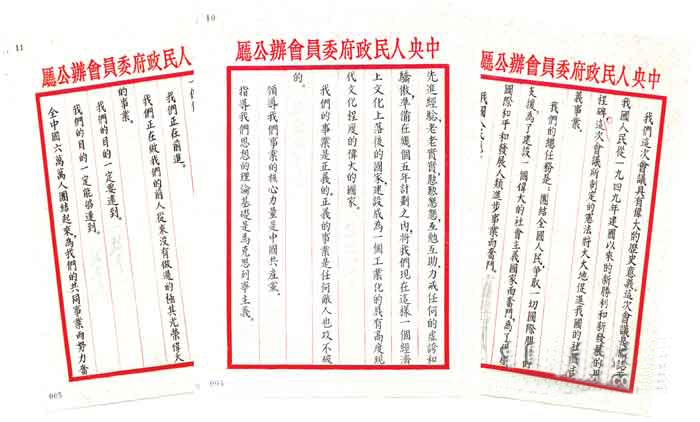 中央人民政府委員會辦公
我們這次會議具有偉大的歷史意義。這次會議是標誌着
我國人民從一九四九年建國以來的新勝利和新發展的里
程碑,這次會議所制定的憲法將大大地促進我國的社會主
義事業。
我們的總任務是:團結全國人民,爭取一切國際朋友的
支援,為了建設一個偉大的社會主義國家而奮鬥,為了保衛
國際和平和發展人類進步事業而奮鬥。
10
中央人民政府委員會辦公廳
先進經驗,老老實實,勤勤懇懇,互勉互助,力戒任何的虛誇和
驕傲,準備在幾個五年計劃之內,將我們現在這樣一個經濟
上文化上落後的國家,建設成為一個工業化的具有高度現
代文化程度的偉大的國家。
我們的事業是正義的。正義的事業是任何敵人也攻不破
的。
領導我們事業的核心力量是中國共產黨。
指導我們思想的理論基礎是馬克思列寧主義。
004
11
人民政府委員會辦公廳
我們正在前進。
我們正在做我們的前人從來沒有做過的極其光榮偉大
的事業。
我們的目的一定要達到。
我們的目的一定能夠達到。
全中國六萬萬人團結起來,為我們的共同事業而努力奮
005